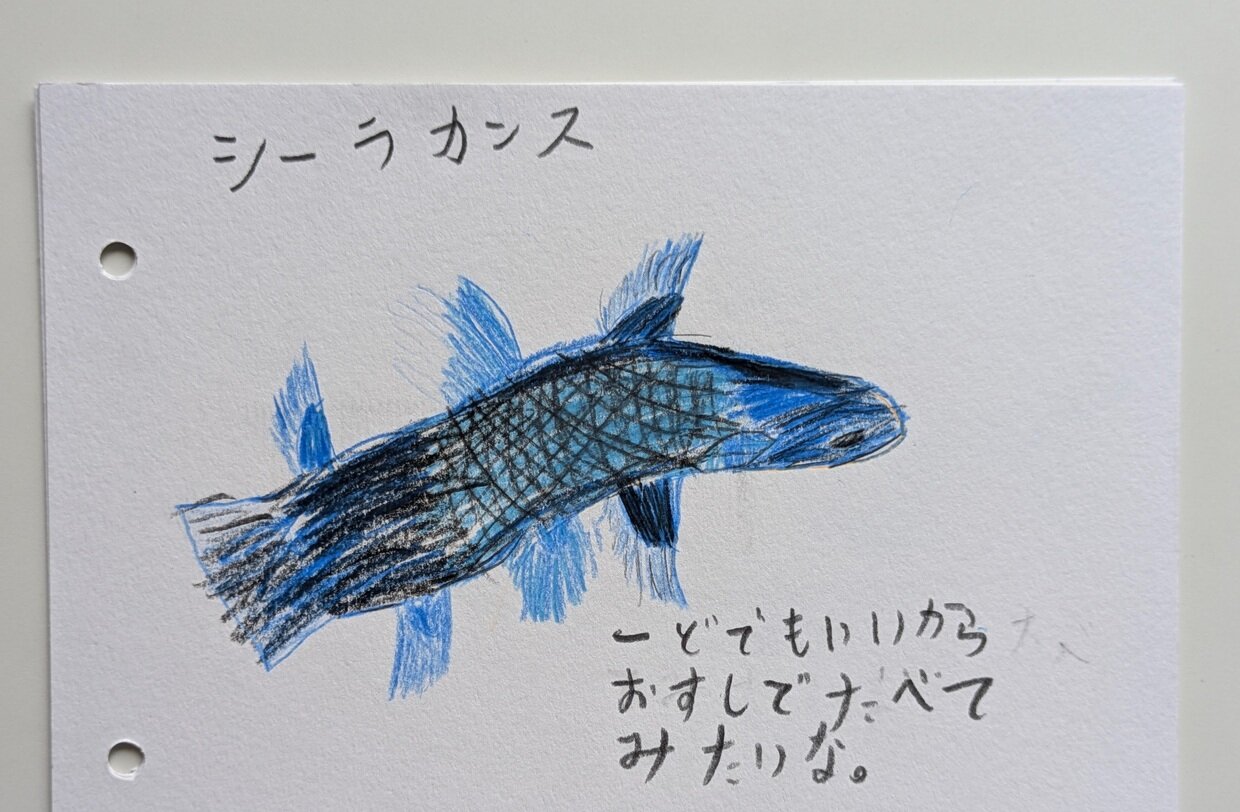 シーラカンス
一どでもいいから
おすしでたべて
みたいな。